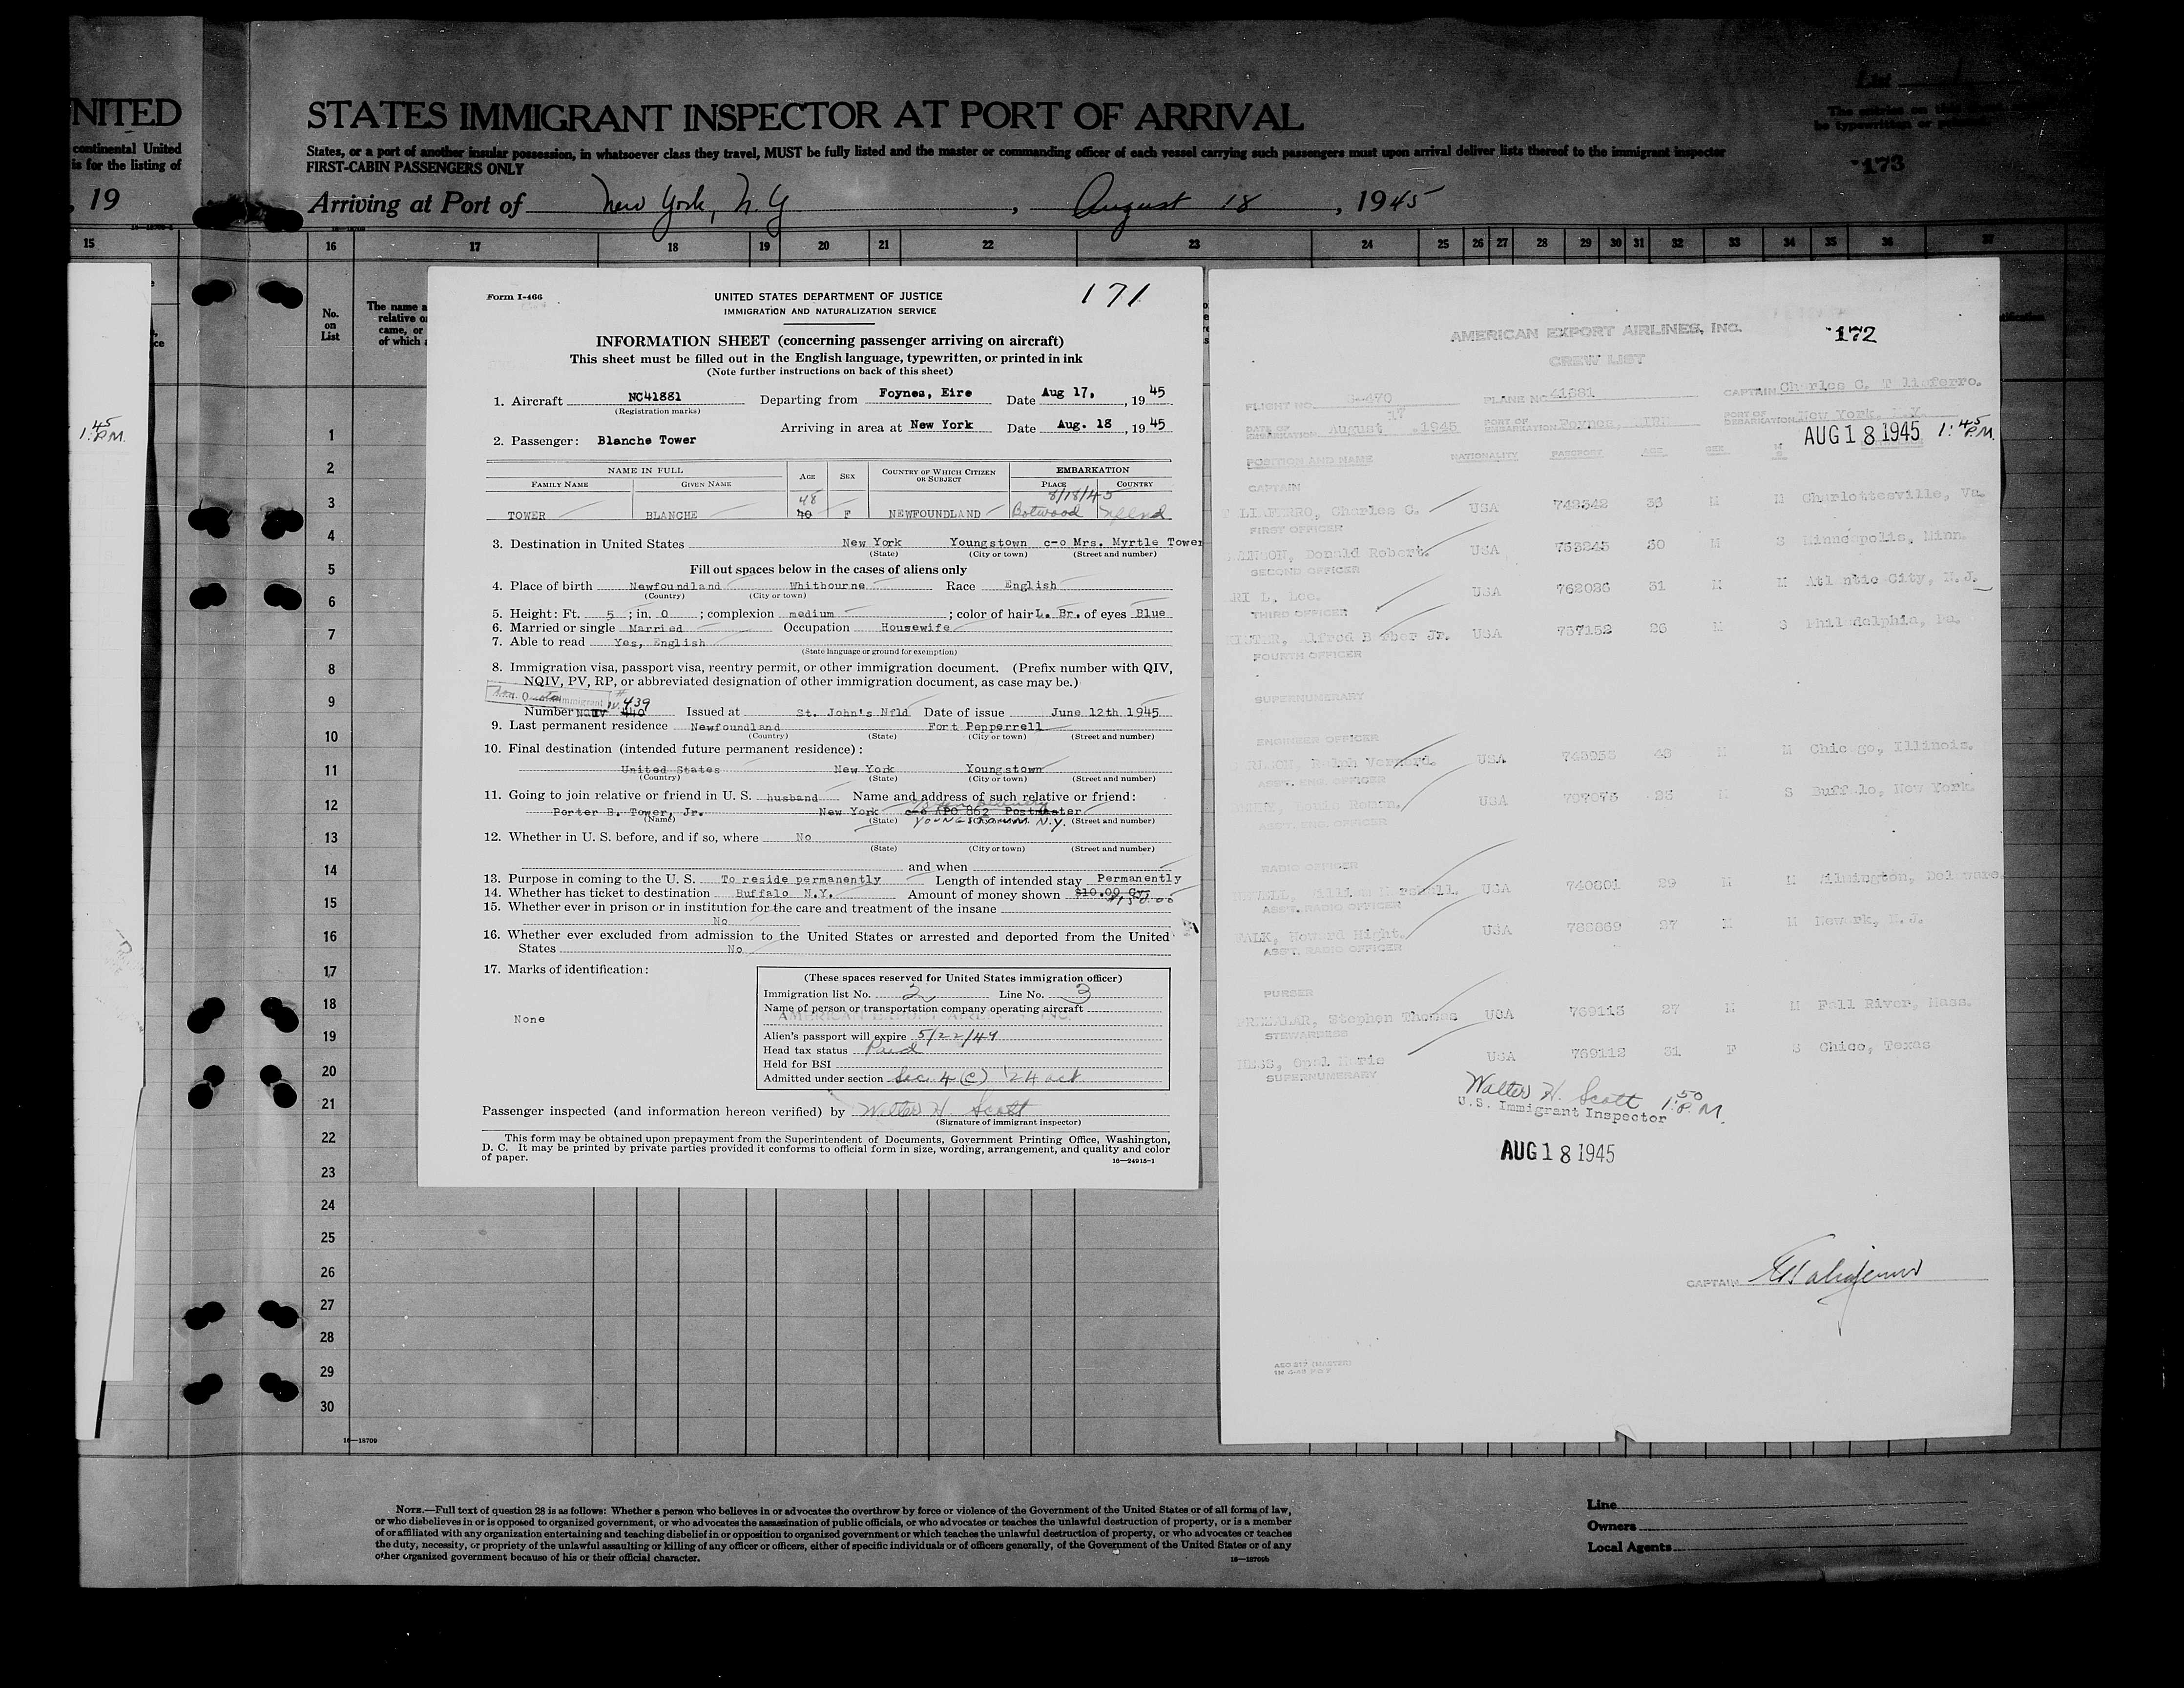 NITED
continental United
is for the listing of
, 19
15
1:45
P.M.
STATES IMMIGRANT INSPECTOR AT PORT OF ARRIVAL
States, or a port of another insular possession, in whatsoever class they travel, MUST be fully listed and the master or commanding officer of each vessel carrying such passengers must upon arrival deliver lists thereof to the immigrant inspector
FIRST-CABIN PASSENGERS ONLY
173
Arriving at Port of New York, N.Y , August 18 , 1945
16 17 18 19 20 21 22 23 24 25 26 27 28 29 30 31 32 33 34 35 36 37
No.
on
List
The name a
relative o
came, or
of which a
1
2
3
4
5
6
7
8
9
10
11
12
13
14
15
16
17
18
19
20
21
22
23
24
25
26
27
28
29
30
16—18709
Form I-466
171
UNITED STATES DEPARTMENT OF JUSTICE
IMMIGRATION AND NATURALIZATION SERVICE
INFORMATION SHEET (concerning passenger arriving on aircraft)
This sheet must be filled out in the English language, typewritten, or printed in ink
(Note further instructions on back of this sheet)
1. Aircraft NC41881 Departing from Foynes, Eire Date Aug 17, , 19 45
(Registration marks)
Arriving in area at New York Date Aug. 18 , 19 45
2. Passenger: Blanche Tower
NAME IN FULL AGE SEX COUNTRY OF WHICH CITIZEN OR SUBJECT EMBARKATION
FAMILY NAME GIVEN NAME PLACE COUNTRY
48 8/18/45
TOWER BLANCHE 40 F NEWFOUNDLAND Botwood Nflnd
3. Destination in United States New York Youngstown c-o Mrs. Myrtle Tower
(State) (City or town) (Street and number)
Fill out spaces below in the cases of aliens only
4. Place of birth Newfoundland Whitbourne Race English
(Country) (City or town)
5. Height: Ft. 5 ; in. 0 ; complexion medium ; color of hair L. Br. of eyes Blue
6. Married or single Married Occupation Housewife
7. Able to read Yes, English
(State language or ground for exemption)
8. Immigration visa, passport visa, reentry permit, or other immigration document. (Prefix number with QIV,
NQIV, PV, RP, or abbreviated designation of other immigration document, as case may be.)
#439
Number NQIV 440 Issued at St. John's Nfld Date of issue June 12th 1945
9. Last permanent residence Newfoundland Fort Pepperrell
(Country) (State) (City or town) (Street and number)
10. Final destination (intended future permanent residence):
United States New York Youngstown
(Country) (State) (City or town) (Street and number)
11. Going to join relative or friend in U. S. husband Name and address of such relative or friend:
Porter B. Tower, Jr. New York c-o APO 862 Postmaster
(Name) (State) YOUNGSTOWN N.Y. (Street and number)
12. Whether in U. S. before, and if so, where No
(State) (City or town) (Street and number)
and when
13. Purpose in coming to the U. S. To reside permanently Length of intended stay Permanently
14. Whether has ticket to destination Buffalo N.Y. Amount of money shown $10.00 Cy.
$150.00
15. Whether ever in prison or in institution for the care and treatment of the insane
No
16. Whether ever excluded from admission to the United States or arrested and deported from the United
States No
17. Marks of identification:
None
(These spaces reserved for United States immigration officer)
Immigration list No. 2 Line No. 3
Name of person or transportation company operating aircraft
AMERICAN EXPORT AIRLINES, INC.
Alien's passport will expire 5/22/49
Head tax status Paid
Held for BSI
Admitted under section Sec. 4 (c) '24 act.
Passenger inspected (and information hereon verified) by Walter H. Scott
(Signature of immigrant inspector)
This form may be obtained upon prepayment from the Superintendent of Documents, Government Printing Office, Washington,
D. C. It may be printed by private parties provided it conforms to official form in size, wording, arrangement, and quality and color
of paper.
16—24915-1
AMERICAN EXPORT AIRLINES, INC.
172
CREW LIST
FLIGHT NO. PLANE NO. 41881 CAPTAIN Charles C. Taliaferro.
DATE OF EMBARKATION August 17 .1945 PORT OF EMBARKATION Foynes, PORT OF DEBARKATION New York, N.Y.
AUG 18 1945 1:45 P.M.
POSITION AND NAME NATIONALITY PASSPORT AGE SEX
CAPTAIN
Charles C. USA 36 M M Charlottesville, Va.
FIRST OFFICER
Donald Robert. USA 30 M S Minneapolis, Minn.
SECOND OFFICER
Leo. USA 762026 31 M M Atlantic City, N.J.
THIRD OFFICER
Alfred Jr. USA 757152 26 M S Philadelphia, Pa.
FOURTH OFFICER
SUPERNUMERARY
ENGINEER OFFICER
Ralph USA M M Chicago, Illinois.
ASST. ENG. OFFICER
USA S Buffalo, New York.
ASST. ENG. OFFICER
RADIO OFFICER
USA 740801 29 M M Wilmington, Delaware.
ASST. RADIO OFFICER
FALK, Howard USA 27 M M Newark, N.J.
ASST. RADIO OFFICER
PURSER
Stephen Thomas USA 769113 27 M M Fall River, Mass.
STEWARDESS
Opal USA 769112 31 F S Chico, Texas
SUPERNUMERARY
Walter H. Scott 1:50 P.M.
U.S. Immigrant Inspector
AUG 18 1945
CAPTAIN
NOTE.—Full text of question 28 is as follows: Whether a person who believes in or advocates the overthrow by force or violence of the Government of the United States or of all forms of law,
or who disbelieves in or is opposed to organized government, or who advocates the assassination of public officials, or who advocates or teaches the unlawful destruction of property, or is a member
of or affiliated with any organization entertaining and teaching disbelief in or opposition to organized government or which teaches the unlawful destruction of property, or who advocates or teaches
the duty, necessity, or propriety of the unlawful assaulting or killing of any officer or officers, either of specific individuals or of officers generally, of the Government of the United States or of any
other organized government because of his or their official character.
16—18709b
Line
Owners
Local Agents